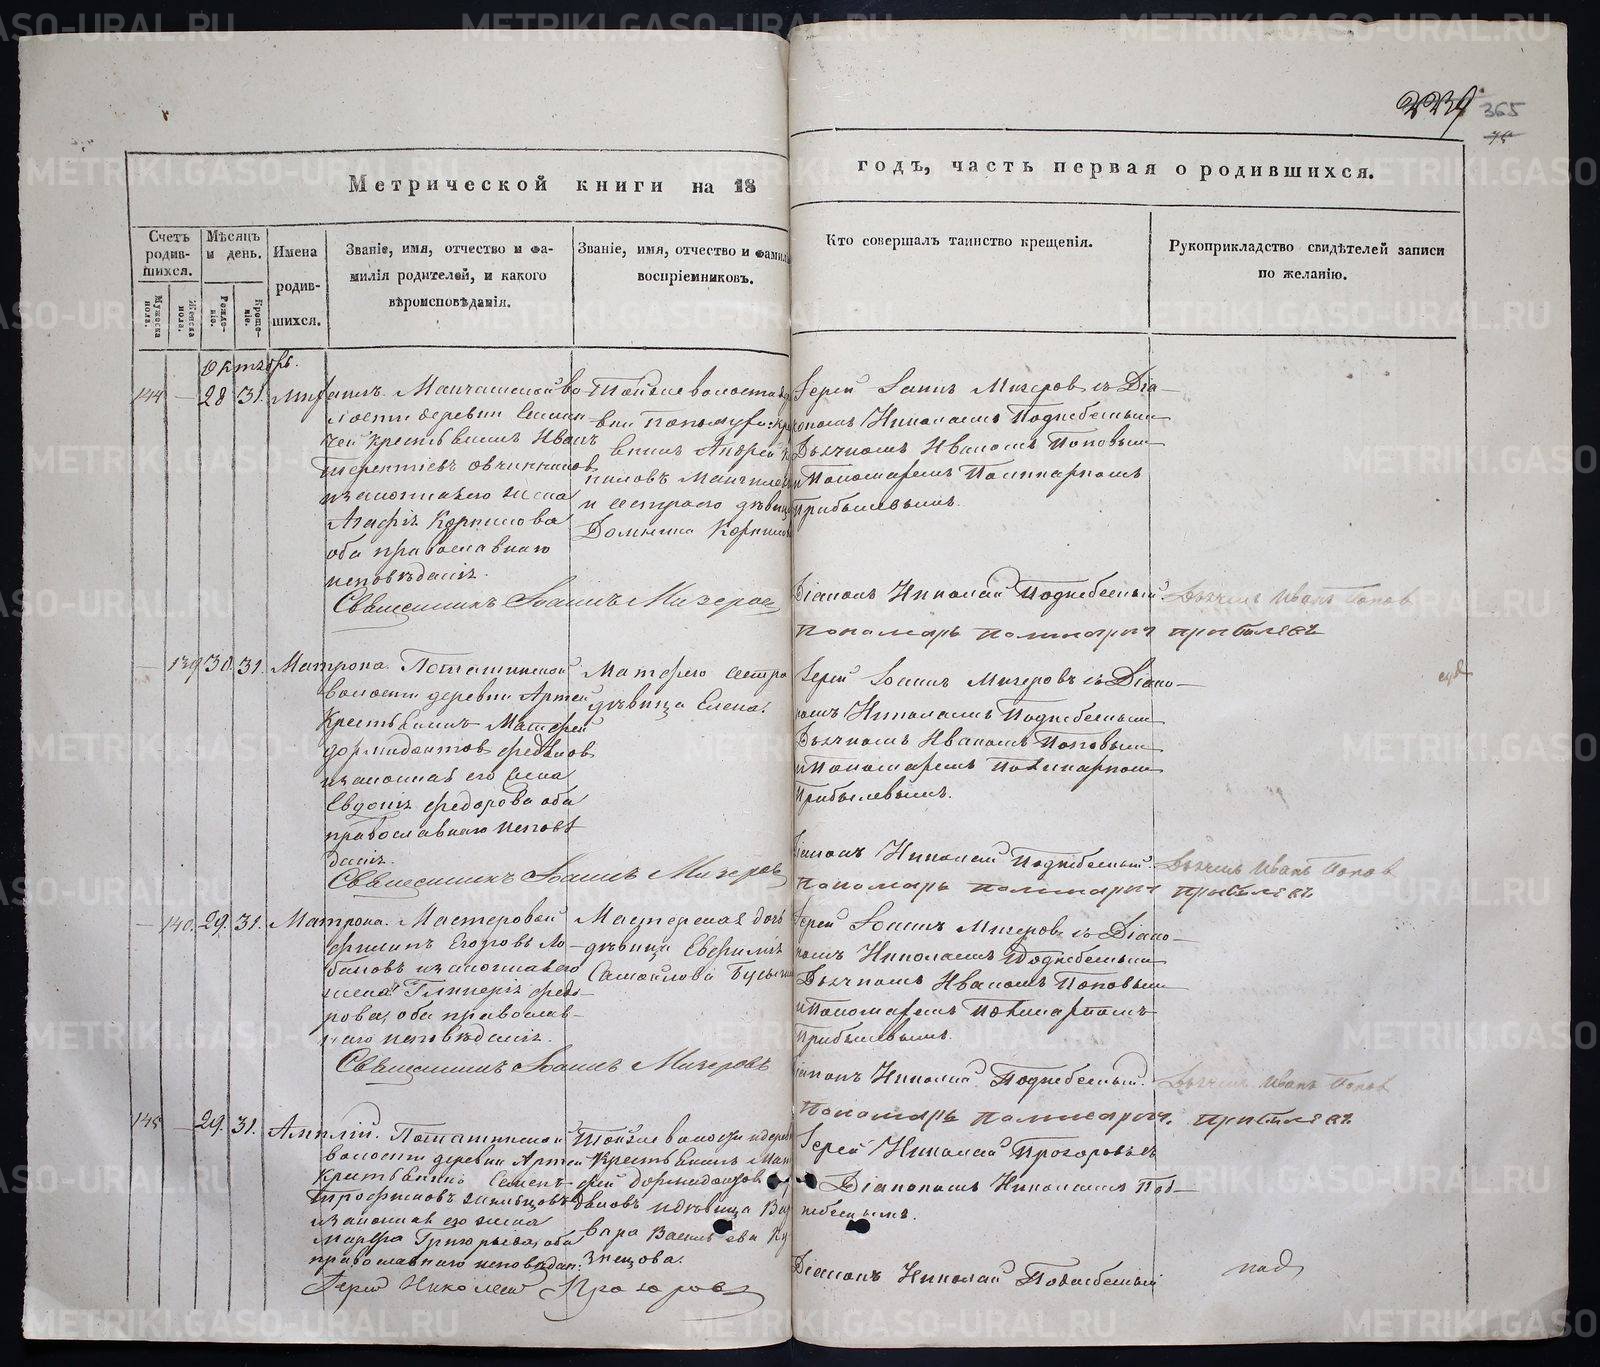 365
Метрической книги на 18
годъ, часть первая о родившихся.
Счетъ родив-
шихся.
Мѣсяцъ
и день.
Имена
родив-
шихся.
Званіе, имя, отчество и фа-
милія родителей, и какого
вѣроисповѣданія.
Званіе, имя, отчество и фамил
воспріемниковъ.
Кто совершалъ таинство крещенія.
Рукоприкладство свидѣтелей записи
по желанію.
Мужеска
пола.
Женска
пола.
Рожде-
ніе.
Креще-
ніе.
Октябрь.
144 — 28 31.
волости деревни
крестьянинъ Иванъ
Терентіевъ Овчинников
и законная его жена
Агафія Корнилова
оба православнаго
исповѣданія.
Священникъ Іоаннъ Мизеров
Той же волости
Андрей
и сестра его дѣвица
Домнина Корнил
Іерей Іоанн Мизеров съ Діа-
кономъ Николаемъ Поднебесным
Дьячкомъ Иваномъ Поповым
и Пономаремъ Поликарпомъ
Прибылевымъ.
Діаконъ Николай Поднебесный. Дьячекъ Иванъ Попов
Пономарь Поликарпъ Прибылевъ
— 139 30. 31. Матрона. Поташинской
волости деревни Артей
Крестьянинъ Матфей
Дормидонтов Федянов
и законная его жена
Евдокія Федорова оба
православнаго исповѣ
данія.
Священникъ Іоаннъ Мизеров
Матфею сестра
дѣвица Елена.
Іерей Іоаннъ Мизеровъ съ Діако-
номъ Николаемъ Поднебесным
Дьячкомъ Иваномъ Поповым
и Пономаремъ Поликарпом
Прибылевымъ.
Діаконъ Николай Поднебесный. Дьячекъ Иванъ Попов
Пономарь Поликарпъ Прибылевъ
— 140. 29. 31. Матрона. Мастеровой
Филипъ Егоровъ Ло-
бановъ и законная его
жена Гликерія Федо-
рова, оба православ-
наго исповѣданія.
Священникъ Іоаннъ Мизеровъ
Мастерская дочь
дѣвица Евфимія
Самойлова
Іерей Іоаннъ Мизеров съ Діако-
номъ Николаемъ Поднебесным
Дьячкомъ Иваномъ Поповым
и Пономаремъ Поликарпомъ
Прибылевымъ.
Діаконъ Николай Поднебесный. Дьячекъ Иванъ Попов
Пономарь Поликарпъ. Прибылевъ
145 — 29. 31. Амплій. Поташинской
волости деревни Артей
Крестьянинъ Семенъ
Трофимовъ
и законная его жена
Марфа Григорьева, оба
православнаго исповѣдан.
Іерей Николай Прозоровъ
Той же волости и дерев
Крестьянинъ Мат
фей Дормидонтов
и дѣвица Вар
вара Васильева Ку
знецова.
Іерей Николай Прозоровъ съ
Діакономъ Николаемъ Под-
небеснымъ.
Діаконъ Николай Поднебесный